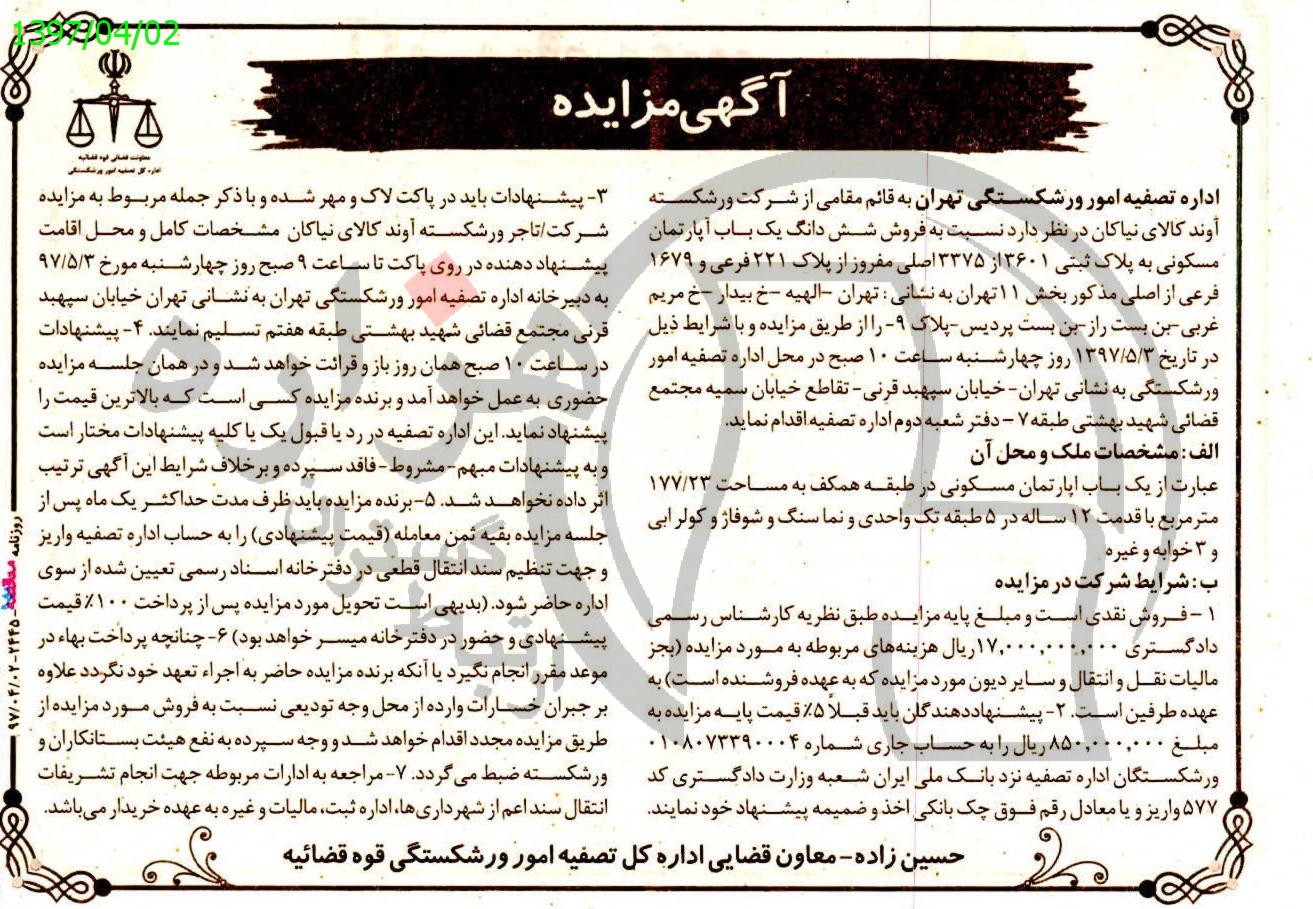 1397/04/02
معاونت قضائی قوه قضائیه
اداره کل تصفیه امور ورشکستگی
آگهی مزایده
اداره تصفیه امور ورشکستگی تهران به قائم مقامی از شرکت ورشکسته
آوند کالای نیاکان در نظر دارد نسبت به فروش شش دانگ یک باب آپارتمان
مسکونی به پلاک ثبتی ۳۶۰۱ از ۳۳۷۵ اصلی مفروز از پلاک ۲۲۱ فرعی و ۱۶۷۹
فرعی از اصلی مذکور بخش ۱۱ تهران به نشانی: تهران -الهیه -خ بیدار -خ مریم
غربی-بن بست راز-بن بست پردیس-پلاک ۹- را از طریق مزایده و با شرایط ذیل
در تاریخ ۱۳۹۷/۵/۳ روز چهارشنبه ساعت ۱۰ صبح در محل اداره تصفیه امور
ورشکستگی به نشانی تهران- خیابان سپهبد قرنی- تقاطع خیابان سمیه مجتمع
قضائی شهید بهشتی طبقه ۷ - دفتر شعبه دوم اداره تصفیه اقدام نماید.
الف: مشخصات ملک و محل آن
عبارت از یک باب اپارتمان مسکونی در طبقه همکف به مساحت ۱۷۷/۲۳
مترمربع با قدمت ۱۲ ساله در ۵ طبقه تک واحدی و نما سنگ و شوفاژ و کولر ابی
و ۳ خوابه و غیره
ب: شرایط شرکت در مزایده
۱ - فروش نقدی است و مبلغ پایه مزایده طبق نظریه کارشناس رسمی
دادگستری ۱۷,۰۰۰,۰۰۰,۰۰۰ ریال هزینه‌های مربوطه به مورد مزایده (بجز
مالیات نقل و انتقال و سایر دیون مورد مزایده که به عهده فروشنده است) به
عهده طرفین است. ۲- پیشنهاددهندگان باید قبلاً ۵٪ قیمت پایه مزایده به
مبلغ ۸۵۰,۰۰۰,۰۰۰ ریال را به حساب جاری شماره ۰۱۰۸۰۷۳۳۹۰۰۰۴
ورشکستگان اداره تصفیه نزد بانک ملی ایران شعبه وزارت دادگستری کد
۵۷۷ واریز و یا معادل رقم فوق چک بانکی اخذ و ضمیمه پیشنهاد خود نمایند.
۳- پیشنهادات باید در پاکت لاک و مهر شده و با ذکر جمله مربوط به مزایده
شرکت/تاجر ورشکسته آوند کالای نیاکان مشخصات کامل و محل اقامت
پیشنهاد دهنده در روی پاکت تا ساعت ۹ صبح روز چهارشنبه مورخ ۹۷/۵/۳
به دبیرخانه اداره تصفیه امور ورشکستگی تهران به نشانی تهران خیابان سپهبد
قرنی مجتمع قضائی شهید بهشتی طبقه هفتم تسلیم نمایند. ۴- پیشنهادات
در ساعت ۱۰ صبح همان روز باز و قرائت خواهد شد و در همان جلسه مزایده
حضوری به عمل خواهد آمد و برنده مزایده کسی است که بالاترین قیمت را
پیشنهاد نماید. این اداره تصفیه در رد یا قبول یک یا کلیه پیشنهادات مختار است
و به پیشنهادات مبهم-مشروط-فاقد سپرده و برخلاف شرایط این آگهی ترتیب
اثر داده نخواهد شد. ۵-برنده مزایده باید ظرف مدت حداکثر یک ماه پس از
جلسه مزایده بقیه ثمن معامله (قیمت پیشنهادی) را به حساب اداره تصفیه واریز
و جهت تنظیم سند انتقال قطعی در دفترخانه اسناد رسمی تعیین شده از سوی
اداره حاضر شود. (بدیهی است تحویل مورد مزایده پس از پرداخت ۱۰۰٪ قیمت
پیشنهادی و حضور در دفترخانه میسر خواهد بود) ۶- چنانچه پرداخت بهاء در
موعد مقرر انجام نگیرد یا آنکه برنده مزایده حاضر به اجراء تعهد خود نگردد علاوه
بر جبران خسارات وارده از محل وجه تودیعی نسبت به فروش مورد مزایده از
طریق مزایده مجدد اقدام خواهد شد و وجه سپرده به نفع هیئت بستانکاران و
ورشکسته ضبط می گردد. ۷- مراجعه به ادارات مربوطه جهت انجام تشریفات
انتقال سند اعم از شهرداری‌ها، اداره ثبت، مالیات و غیره به عهده خریدار می‌باشد.
حسین زاده-معاون قضایی اداره کل تصفیه امور ورشکستگی قوه قضائیه
روزنامه مناقصه - ۲۴۴۵-۹۷/۰۴/۰۲
هزاره